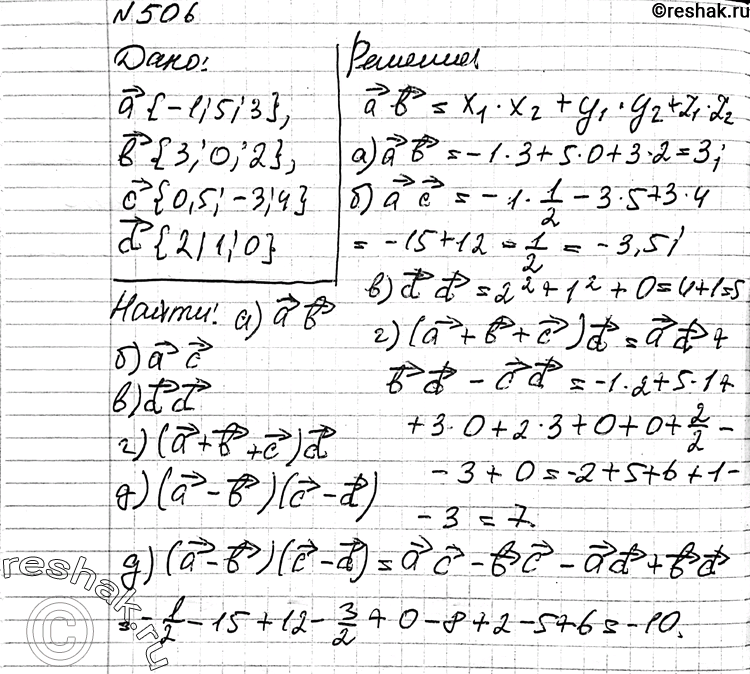 ©reshak.ru
№506
Дано:
a⃗ {-1; 5; 3},
b⃗ {3; 0; 2},
c⃗ {0,5; -3; 4}
d⃗ {2; 1; 0}
Найти: а) a⃗ b⃗
б) a⃗ c⃗
в) d⃗ d⃗
г) (a⃗ + b⃗ + c⃗) d⃗
д) (a⃗ - b⃗)(c⃗ - d⃗)
Решение
a⃗ b⃗ = x₁ · x₂ + y₁ · y₂ + z₁ · z₂
а) a⃗ b⃗ = -1·3 + 5·0 + 3·2 = 3;
б) a⃗ c⃗ = -1 · 1/2 - 3·5 + 3·4
= -15 + 12 - 1/2 = -3,5;
в) d⃗ d⃗ = 2² + 1² + 0 = 4+1=5
г) (a⃗ + b⃗ + c⃗) d⃗ = a⃗ d⃗ +
b⃗ d⃗ - c⃗ d⃗ = -1·2 + 5·1 +
+ 3·0 + 2·3 + 0 + 0 + 2/2 -
- 3 + 0 = -2 + 5 + 6 + 1 -
- 3 = 7.
д) (a⃗ - b⃗)(c⃗ - d⃗) = a⃗ c⃗ - b⃗ c⃗ - a⃗ d⃗ + b⃗ d⃗
= -1/2 - 15 + 12 - 3/2 + 0 - 8 + 2 - 5 + 6 = -10.
reshak.ru
©